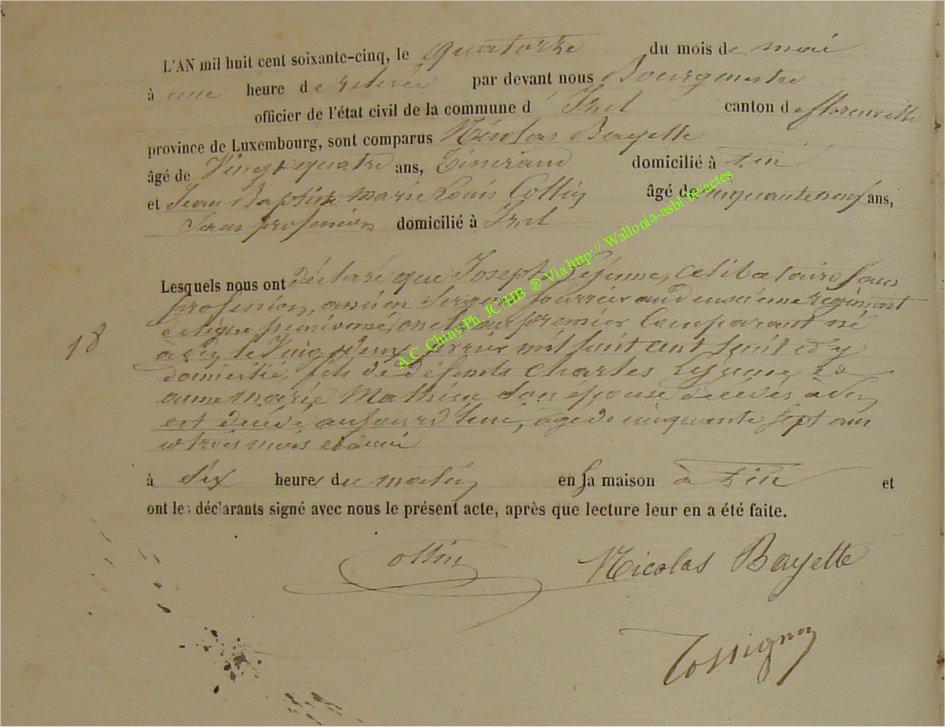 L'AN mil huit cent soixante-cinq, le quatorze du mois de mai
à une heure de relevée par devant nous Bourgmestre
officier de l'état civil de la commune d' Izel canton de florenville
province de Luxembourg, sont comparus Nicolas Bayette
âgé de Vingt quatre ans, Tisserand domicilié à Pin
et Jean Baptiste marie Louis Collin âgé de cinquante neuf ans,
Sans profession domicilié à Izel
Lesquels nous ont Déclaré que Joseph Lejeune, célibataire Sans
profession, ancien Sergent fourrier au deuxième régiment
de ligne pensionné, oncle du premier Comparant né
à Pin le Vingt deux février mil huit cent huit et y
domicilié, fils de défunts Charles Lejeune et
anne marie Mathieu Son épouse décédés à Pin
est décédé aujourd'hui, âgé de cinquante sept ans
trois mois
18
à Six heures du matin en sa maison à Pin et
ont les déclarants signé avec nous le présent acte, après que lecture leur en a été faite.
Collin
Nicolas Bayette
Tossignon
A.C. Chiny Ph. JC HB ® Via http:// Wallonia-asbl be-actes